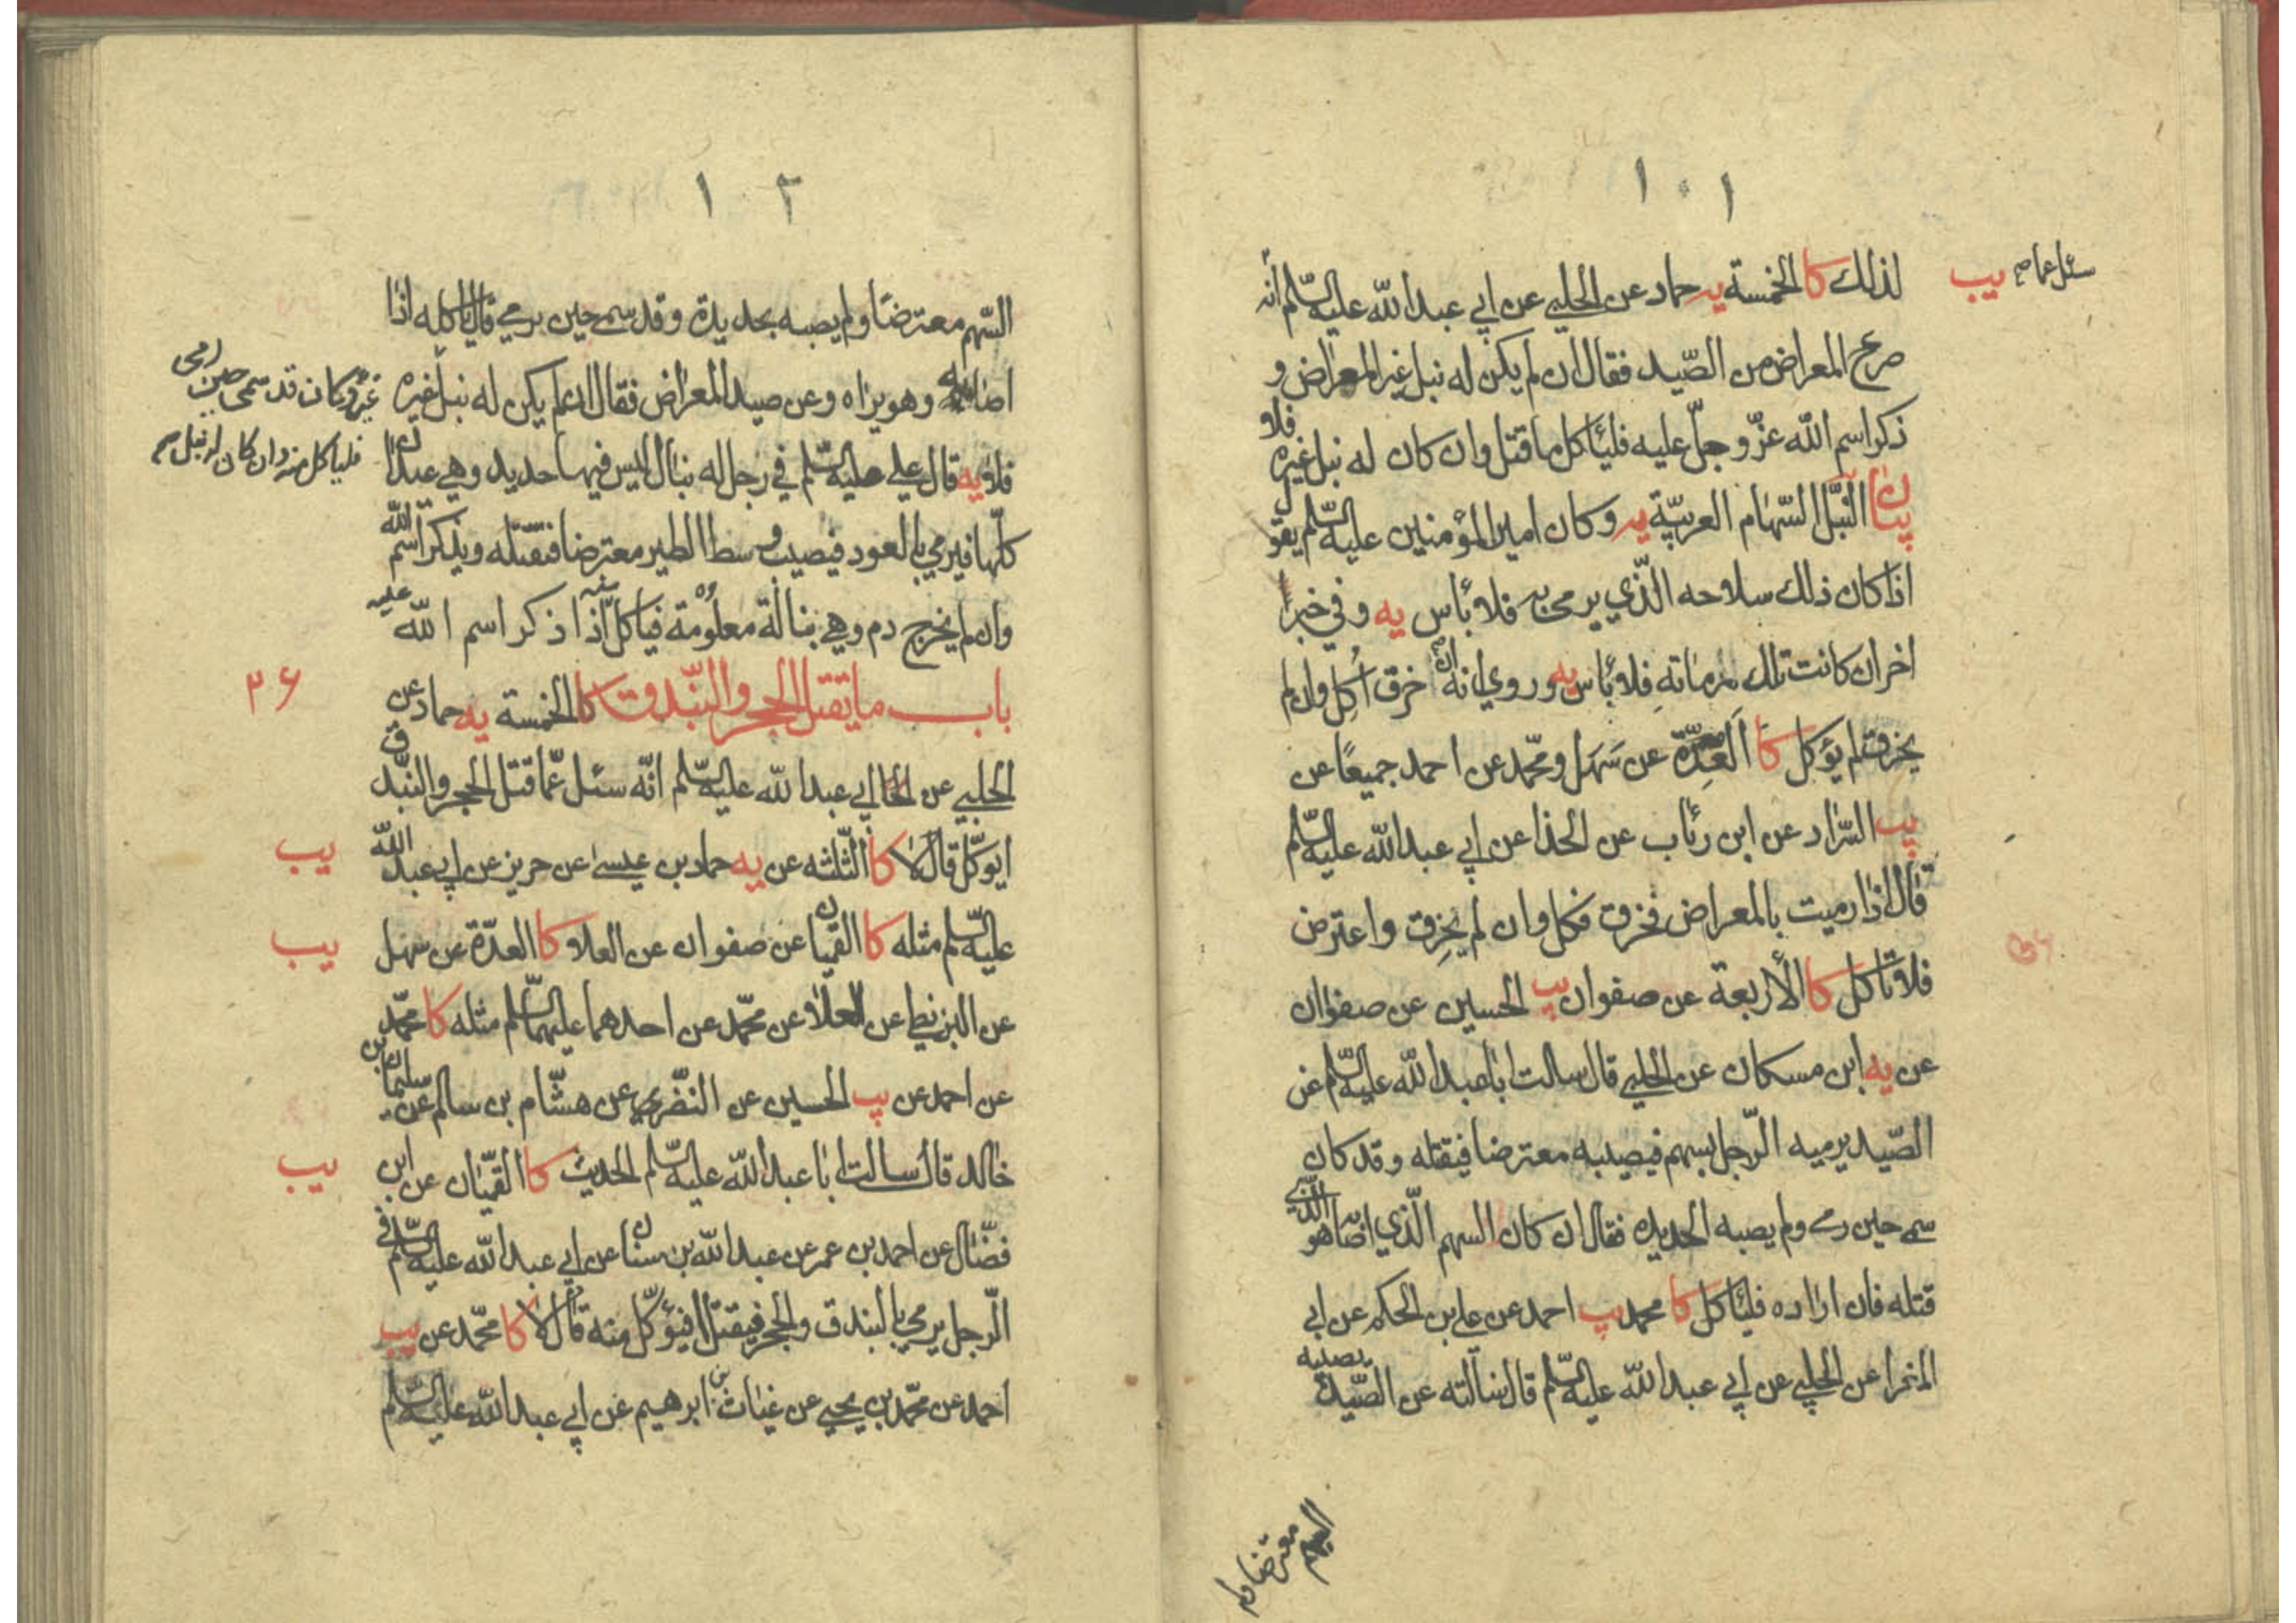 ١٠١
سئل عما صح يب
لذلك كا الخمسة يه حماد عن الحلبي عن ابي عبد الله عليه السّلم أنه
صرع المعراض من الصّيد فقال ان لم يكن له نبل غير المعراض و
ذكر اسم الله عزّ وجلّ عليه فليأكل ما قتل وان كان له نبل غيره فلا
بيان النَّبل السّهام العربيّة يه وكان امير المؤمنين عليه السّلم يقول
اذا كان ذلك سلاحه الّذي يرمي به فلا بأس يه وفي خبر
اخر ان كانت تلك مرماته فلا بأس يه وروي انه ان خرق اُكل وان لم
يخرق لم يؤكل كا العِدّة عن سَهل ومحمّد عن احمد جميعًا عن
يب السّراد عن ابن رئاب عن الحذا عن ابي عبد الله عليه السّلم
قال اذا رميت بالمعراض فخرق فكل وان لم يخرق واعترض
فلا تأكل كا الأربعة عن صفوان يب الحسين عن صفوان
عن يه ابن مسكان عن الحلبي قال سالت ابا عبد الله عليه السّلم عن
الصّيد يرميه الرّجل بسهم فيصيبه معترضا فيقتله وقد كان
سمى حين رمى ولم يصبه الحديده فقال ان كان السهم الّذي اصابه هو الّذي
قتله فان اراده فليأكل كا محمد يب احمد عن علي بن الحكم عن ابي
المغرا عن الحلبي عن ابي عبد الله عليه السّلم قال سالته عن الصّيد يصيبه
السهم معترضا ولم
١٠٢
السّهم معترضا ولم يصبه بحديدة وقد سمى حين يرمي قال ياكله اذا
اصابه وهو يراه وعن صيد المعراض فقال ان لم يكن له نبل غيره
غيره وكان قد سمى حين رمى
فلياكل منه وان كان له نبل صح
فلا يه قال علي عليه السّلم في رجل له نبال ليس فيها حديد وهي عيدان
كلّها فيرمي بالعود فيصيب وسط الطير معترضا فيقتله ويذكر اسم الله
وان لم يخرج دم وهي نبالة معلومة فياكل منه اذا ذكر اسم الله عليه
باب ما يقتل الحجر والبندق كا الخمسة يه حماد عن
٣٦
الحلبي عن ابي عبد الله عليه السّلم انّه سئل عمّا قتل الحجر والبندق
ايؤكل قال لا كا الثلثه عن يه حماد بن عيسى عن حريز عن ابي عبد الله
يب
عليه السّلم مثله كا القميان عن صفوان عن العلا و كا العدّة عن سهل
يب
عن البزنطي عن العلا عن محمّد عن احدهما عليهما السّلم مثله كا محمّد
عن احمد عن يب الحسين عن النضر عن هشام بن سالم عن سليمان بن
خالد قال سالت ابا عبد الله عليه السّلم الحديث كا القمّيان عن ابن
يب
فضّال عن احمد بن عمر عن عبد الله بن سنان عن ابي عبد الله عليه السّلم في
الرّجل يرمي بالبندق والحجر فيقتل افيؤكل منه قال لا كا محمّد عن يب
احمد عن محمّد بن يحيى عن غياث بن ابرهيم عن ابي عبد الله عليه السّلم